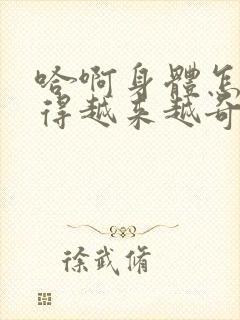 哈啊身體怎
得越来越奇
徐武脩